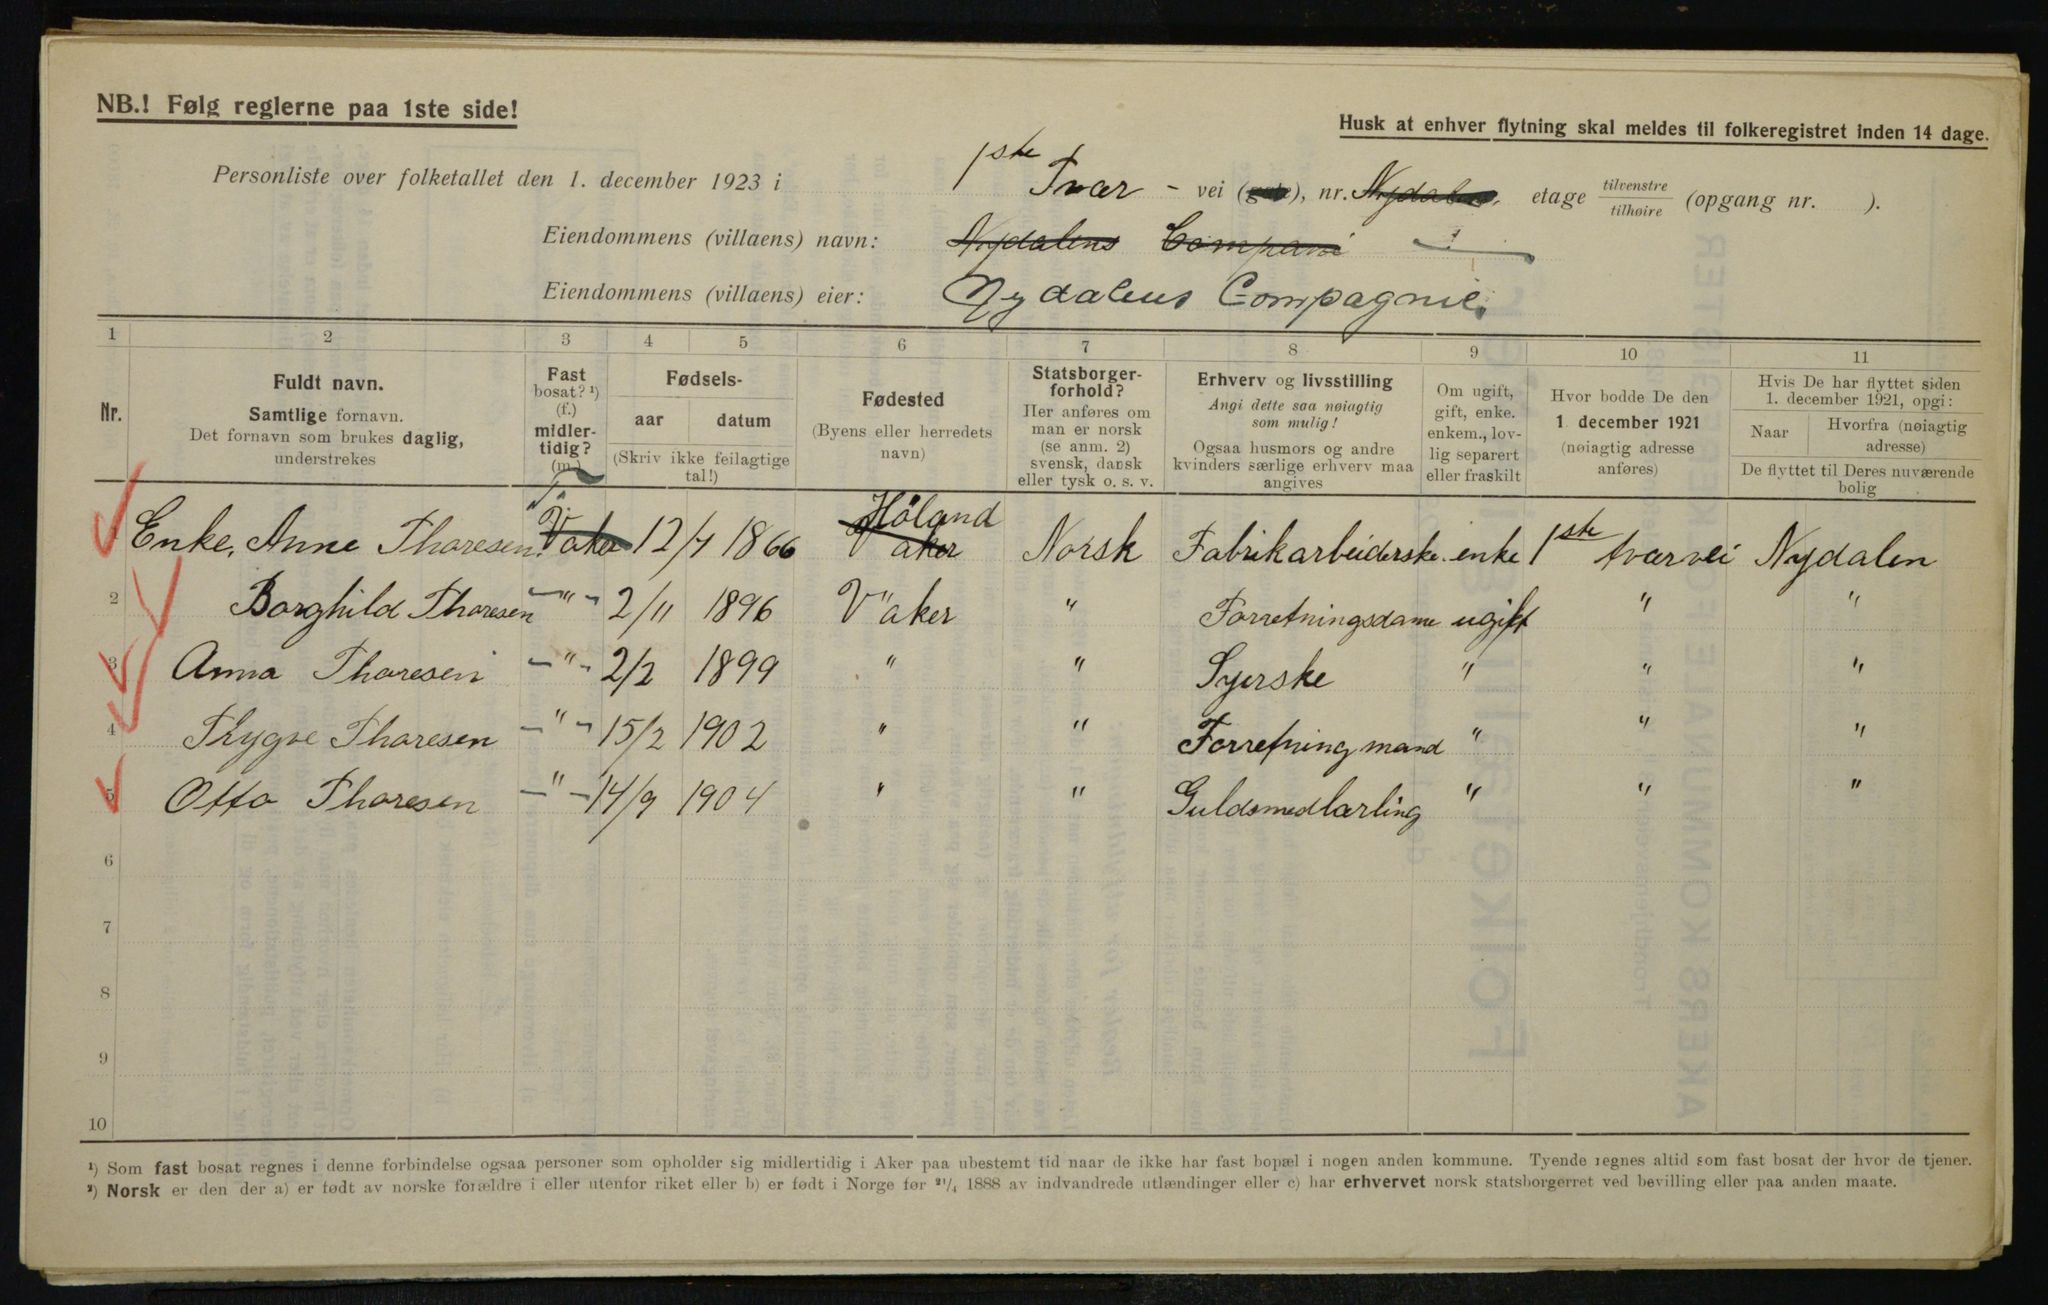 NB.! Følg reglerne paa 1ste side!
Husk at enhver flytning skal meldes til folkeregistret inden 14 dage.
Personliste over folketallet den 1. december 1923 i 1ste Tvær - vei (gate), nr. Nydalen, etage tilvenstre tilhøire (opgang nr. ).
Eiendommens (villaens) navn: Nydalens Compani
Eiendommens (villaens) eier: Nydalens Compagnie.
1 2 3 4 5 6 7 8 9 10 11
Nr.
Fuldt navn.
Samtlige fornavn.
Det fornavn som brukes daglig,
understrekes
Fast
bosat? ¹)
(f.)
midler-
tidig?
(m.)
Fødsels-
aar datum
(Skriv ikke feilagtige
tal!)
Fødested
(Byens eller herredets
navn)
Statsborger-
forhold?
Her anføres om
man er norsk
(se anm. 2)
svensk, dansk
eller tysk o. s. v.
Erhverv og livsstilling
Angi dette saa nøiagtig
som mulig!
Ogsaa husmors og andre
kvinders særlige erhverv maa
angives
Om ugift,
gift, enke.
enkem., lov-
lig separert
eller fraskilt
Hvor bodde De den
1 december 1921
(nøiagtig adresse
anføres)
Hvis De har flyttet siden
1. december 1921, opgi:
Naar Hvorfra (nøiagtig
adresse)
De flyttet til Deres nuværende
bolig
Høland
1 Enke, Anne Thoresen. V aker 12/7 1866 V aker Norsk Fabrikarbeiderske. enke 1ste tværvei Nydalen
2 Borghild Thoresen -"- 2/11 1896 V aker " Forretningsdame ugift " "
3 Anna Thoresen -"- 2/2 1899 " " Syerske " " "
4 Thygve Thoresen -"- 15/2 1902 " " Forretning mand " " "
5 Otto Thoresen -"- 14/9 1904 " " Guldsmedlærling " " "
6
7
8
9
10
¹) Som fast bosat regnes i denne forbindelse ogsaa personer som opholder sig midlertidig i Aker paa ubestemt tid naar de ikke har fast bopæl i nogen anden kommune. Tyende regnes altid som fast bosat der hvor de tjener.
²) Norsk er den der a) er født av norske forældre i eller utenfor riket eller b) er født i Norge før ²¹/₄ 1888 av indvandrede utlændinger eller c) har erhvervet norsk statsborgerret ved bevilling eller paa anden maate.